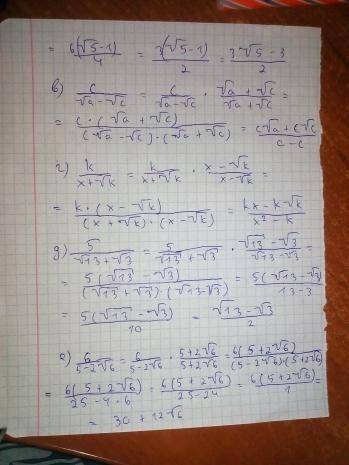 = 6(√5-1)/4 = 3(√5-1)/2 = 3√5-3/2
в) c/√a-√c = c/√a-√c · √a+√c/√a+√c =
= c·(√a+√c)/(√a-√c)·(√a+√c) = c√a+c√c/a-c
г) k/x+√k = k/x+√k · x-√k/x-√k =
= k·(x-√k)/(x+√k)·(x-√k) = kx-k√k/x²-k
д) 5/√13+√3 = 5/√13+√3 · √13-√3/√13-√3 =
= 5(√13-√3)/(√13+√3)·(√13-√3) = 5(√13-√3)/13-3
= 5(√13-√3)/10 = √13-√3/2
е) 6/5-2√6 = 6/5-2√6 · 5+2√6/5+2√6 = 6(5+2√6)/(5-2√6)·(5+2√6)
= 6(5+2√6)/25-4·6 = 6(5+2√6)/25-24 = 6(5+2√6)/1 =
= 30+12√6